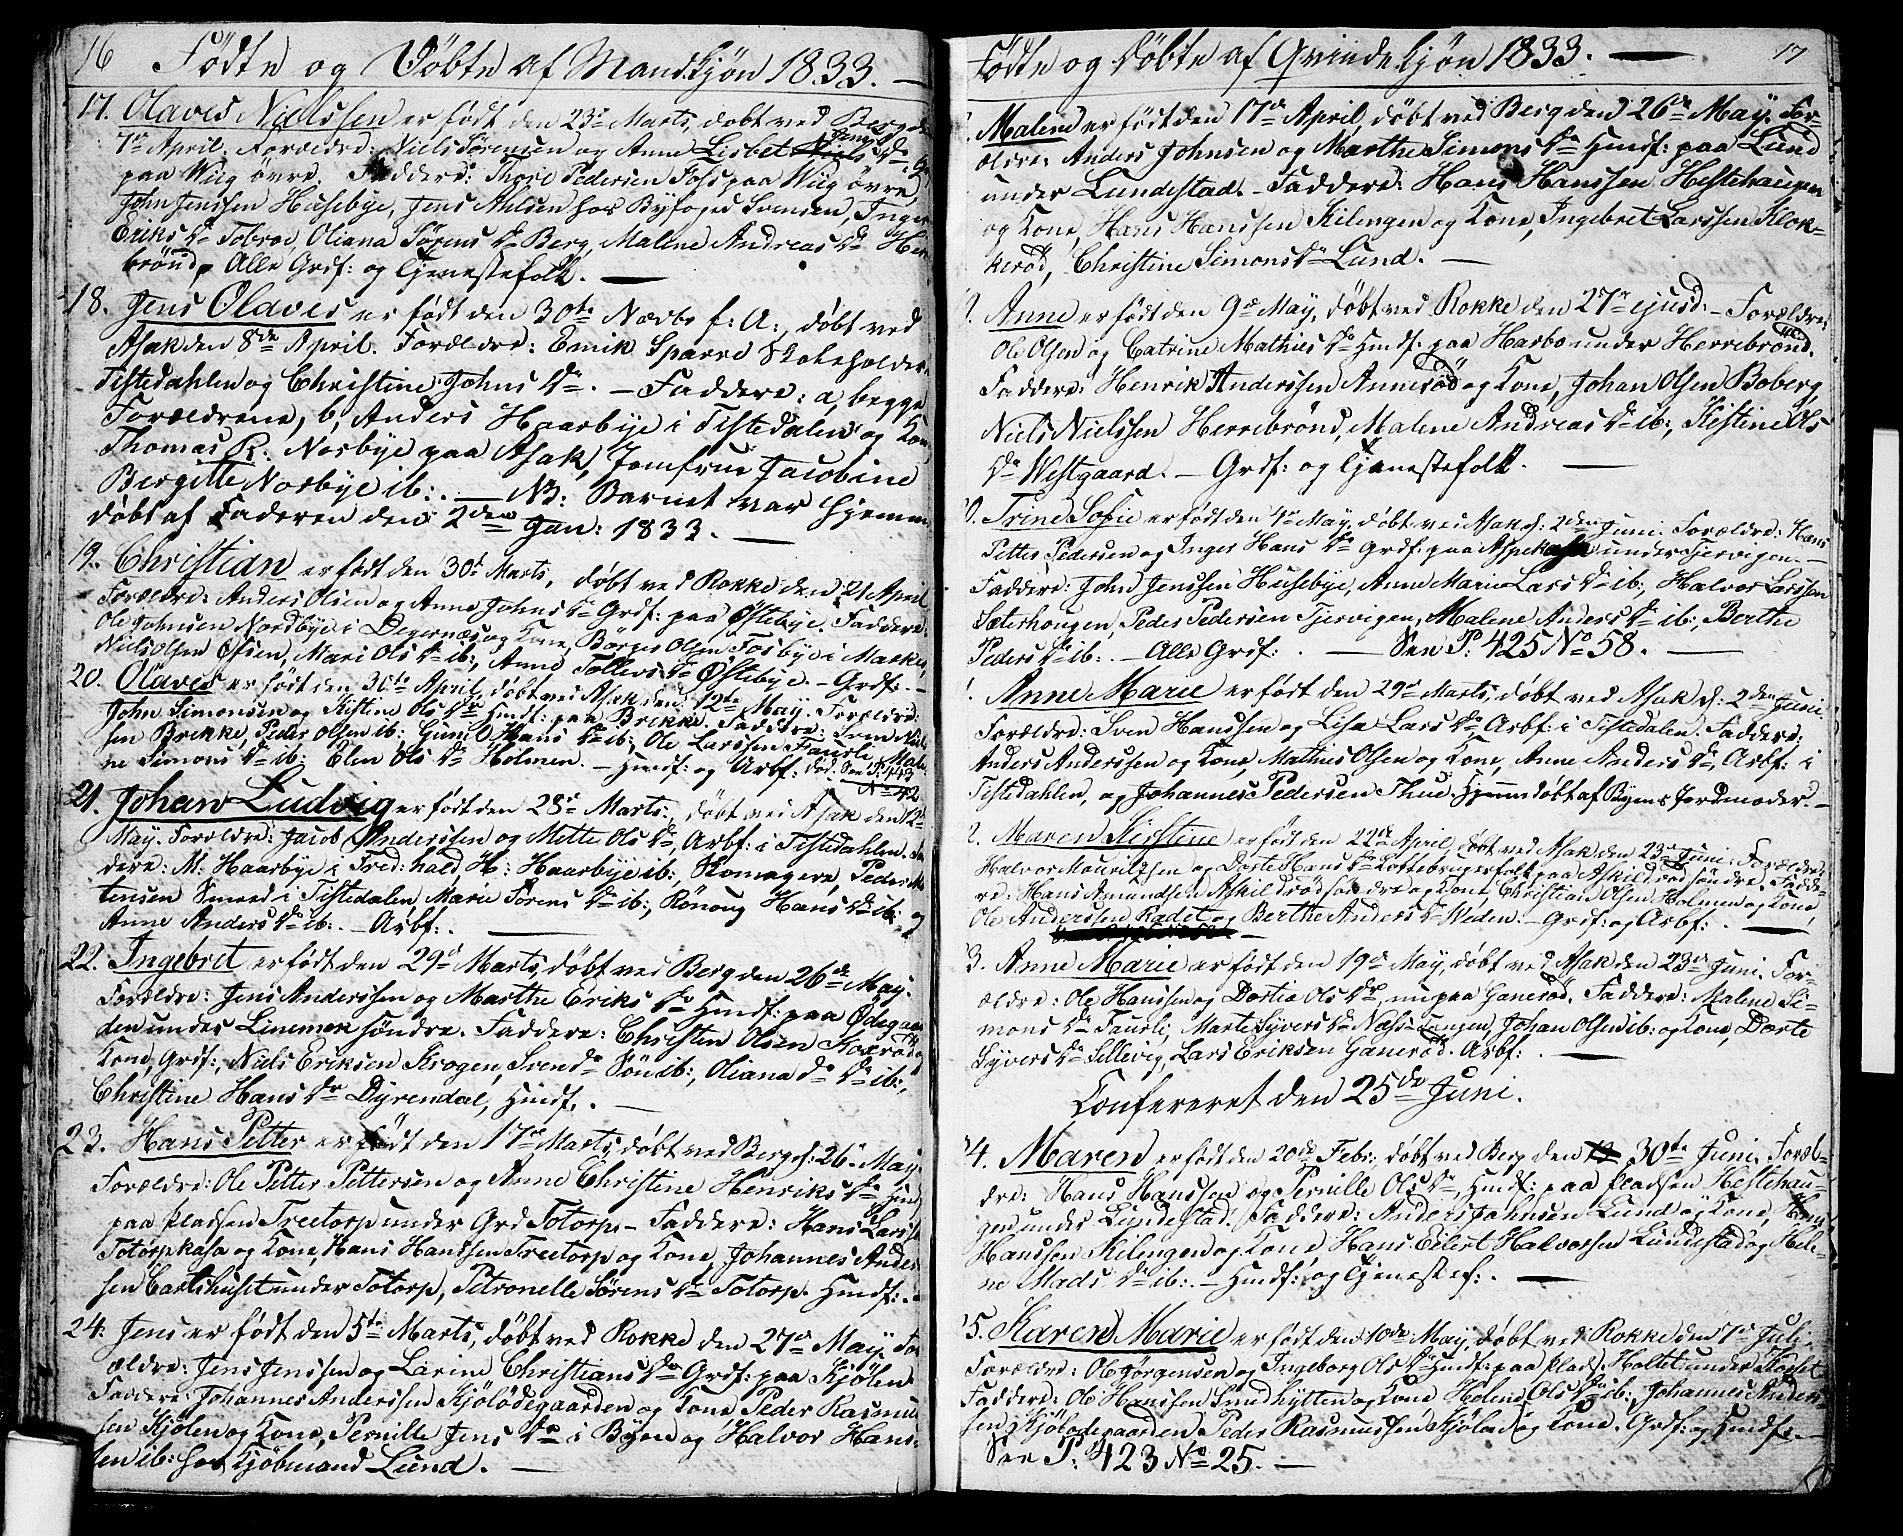 16 Fødte og Døbte af Mandkjøn 1833. —
17. Olaves Nielssen er født den 23de Marts, døbt ved Berg d:
7de April. Forældre: Niels Sørensen og Anne Lisbet Dr.
paa Wiig øvre. Faddere: Thore Pedersen Foss paa Wiig øvre,
John Jenssen Husebye, Jens Ahlsen hos Byfoged Svensen, Inger
Eriks Dr. Tobroe, Oliana Sørens Dr. Berg, Malene Andreas Dr. Her-
brønd, Alle Grdf: og Tjenestefolk. —
18. Jens Olaves er født den 30te Novbr f: A:, døbt ved
Asak den 8de April. Forældre: Emik Sparre Skoleholder
Tistedahlen og Christine Johns Dr. — Faddere: a, begge
Forældrene, b, Anders Haarbye i Tistedalen og Kone,
Thomas R. Norbye paa Asak, Jomfrue Jacobine
Bergitte Norbye ib:. — NB: Barnet var hjemme
døbt af Faderen den 2den Jan: 1833. —
19. Christian er født den 30te Marts, døbt ved Rokke den 21 April
Forældre: Anders Olsen og Anne Johns Dr. Grdf: paa Østebye. Faddere:
Ole Johnsen Nordbye i Degernæs og Kone, Børger Olsen Fosbye i Marker,
Niels Olsen Øfsen, Mari Ols Dr. ib:, Anne Tollers Dr. Østebye. — Grdf: —
20. Olaves er født den 30te April, døbt ved Asak den 12te May. Forældre:
John Simonsen og Kistine Ols Dr. Hmdf: paa Brekke. Faddere: Sven Niel-
sen Brekke, Peder Olsen ib: Gunil Hans Dr. ib:, Ole Larssen Taurli, Male-
ne Simons Dr. ib: Elen Ols Dr. Holmen. — Hmdf: og Arbf: See P: 443
No 42
21. Johan Ludvig er født den 28de Marts:, døbt ved Asak den 12te
May. Forældre: Jacob Anderssen og Mette Ols Dr. Arbf: i Tistedahlen. Fad-
dere: M: Haarbye i Fred:hald, H: Haarbye ib:, Skomagere, Peder Mor-
tensen Smed i Tistedalen, Marie Sørens Dr. ib:, Rønoug Hans Dr. ib: og
Anne Anders Dr. ib:. — Arbf:. —
22. Ingebret er født den 29de Marts, døbt ved Berg den 26de May.
Forældre: Jens Anderssen og Marthe Eriks Dr. Hmdf: paa Ødegaar-
den under Linemark søndre. Faddere: Christen Olsen Kosrød og
Kone, Grdf:, Niels Eriksen Krogen, Svend Do Søn ib:, Oliana Do Dr. ib:,
Christine Hans Dr. Dyrendal, Hmdf. —
23. Hans Petter er født den 17de Marts, døbt ved Berg d: 26de May.
Forældre: Ole Petter Pettersen og Anne Christine Henriks Dr. Hmdf
paa Pladsen Treetorp under Grd Totorp. — Faddere: Hans Larssen
Totorpkasa og Kone, Hans Hanssen Treetorp og Kone, Johannes Ander-
sen Carlshuset under Totorp, Petronelle Sørens Dr. Totorp. Hmdf:. —
24. Jens er født den 5te Marts, døbt ved Rokke den 27de May. For-
ældre: Jens Jenssen og Larine Christians Dr. Grdf: paa Kjølen.
Faddere: Johannes Anderssen Kjølødegaarden og Kone, Peder Rasmus-
sen Kjølen og Kone, Pernille Jens Dr. i Byen og Halvor Hans-
sen ib: hos Kjøbmand Lund. —
Fødte og Døbte af Qvindekjøn 1833. — 17
Malene er født den 17de April, døbt ved Berg den 26de May. For-
ældre: Anders Johnsen og Marthe Simons Dr. Hmdf: paa Lund
under Lundestad. — Faddere: Hans Hanssen Hestehaugen
og Kone, Hans Hanssen Kilengen og Kone, Ingebret Larssen Klok-
kerød, Christine Simons Dr. Lund. —
9. Anne er født den 9de May, døbt ved Rokke den 27de ejusd: — Forældre:
Ole Olsen og Catrine Mathies Dr. Hmdf: paa Harbo under Herrebrønd.
Faddere: Henrik Anderssen Annerød og Kone, Johan Olsen Boberg,
Niels Nielssen Herrebrønd, Malene Andreas Dr. ib:, Kistine Ols
Dr. Westgaard. — Grdf: og Tjenestefolk. —
0. Trine Sofie er født den 4de May, døbt ved Asak d: 2den Juni. Forældre: Hans
Petter Pedersen og Inger Hans Dr. Grdf: paa Aspekasa under Tjervigen. —
Faddere: John Jenssen Husebye, Anne Marie Lars Dr. ib:, Halvor Larssen
Sæterhougen, Peder Pedersen Tjervigen, Malene Anders Dr. ib:, Berthe
Peders Dr. ib:. — Alle Grdf:. — See P: 425 No 58. —
1. Anne Marie er født den 29de Marts, døbt ved Asak d: 2den Juni.
Forældre: Sven Hanssen og Lisa Lars Dr. Arbf: i Tistedalen. Faddere:
Anders Anderssen og Kone, Mathies Olsen og Kone, Anne Anders Dr., Arbf: i
Tistedahlen, og Johannes Pedersen Thue, Hjemmedøbt af Byens Jordmoder. —
2. Maren Kistine er født den 22de April, døbt ved Asak den 23de Juni. Foræld-
Halvor Mauritzsen og Dorte Hans Dr. paa Askildrød søndre. Fadde-
re: Hans Amundsen Askildrød søndre og Kone, Christian Olsen Holmen og Kone,
Ole Anderssen Radet og Berthe Anders Dr. Weden. — Grdf: og Arbf:. —
3. Anne Marie er født den 19de May, døbt ved Asak den 23de Juni. For-
ældre: Ole Hanssen og Dortea Ols Dr., nu paa Ganerød. Faddere: Malene Si-
mons Dr. Taurli, Marte Syvers Dr. Næss-Tangen, Johan Olsen ib: og Kone, Dorte
Syvers Dr. Sillevig, Lars Eriksen Ganerød. Arbf:. —
Confereret den 25de Juni.
4. Maren er født den 20de Febr:, døbt ved Berg den 30te Juni. Foræl-
dre: Hans Hanssen og Pernille Ols Dr., Hmdf: paa Pladsen Hestehau-
gen under Lundestad. Faddere: Anders Johnsen Lund og Kone, Hans
Hanssen Kilengen og Kone Hans Eilert Halvorsen Lundestad og Hele-
ne Mads Dr. ib:. — Hmdf: og Tjenestef:. —
5. Karen Marie er født den 10de May, døbt ved Rokke den 7de Juli.
Forældre: Ole Jørgensen og Ingeborg Ols Dr. Hmdf: paa Plads. Holtet under Skofet
Faddere: Ole Hanssen Smedhytten og Kone Helene Ols Dr. ib:, Johannes Anders-
sen Kjølødegaarden, Peder Rasmussen Kjølen og Kone. Grdf: og Hmdf:. —
See P: 423 No 25. —